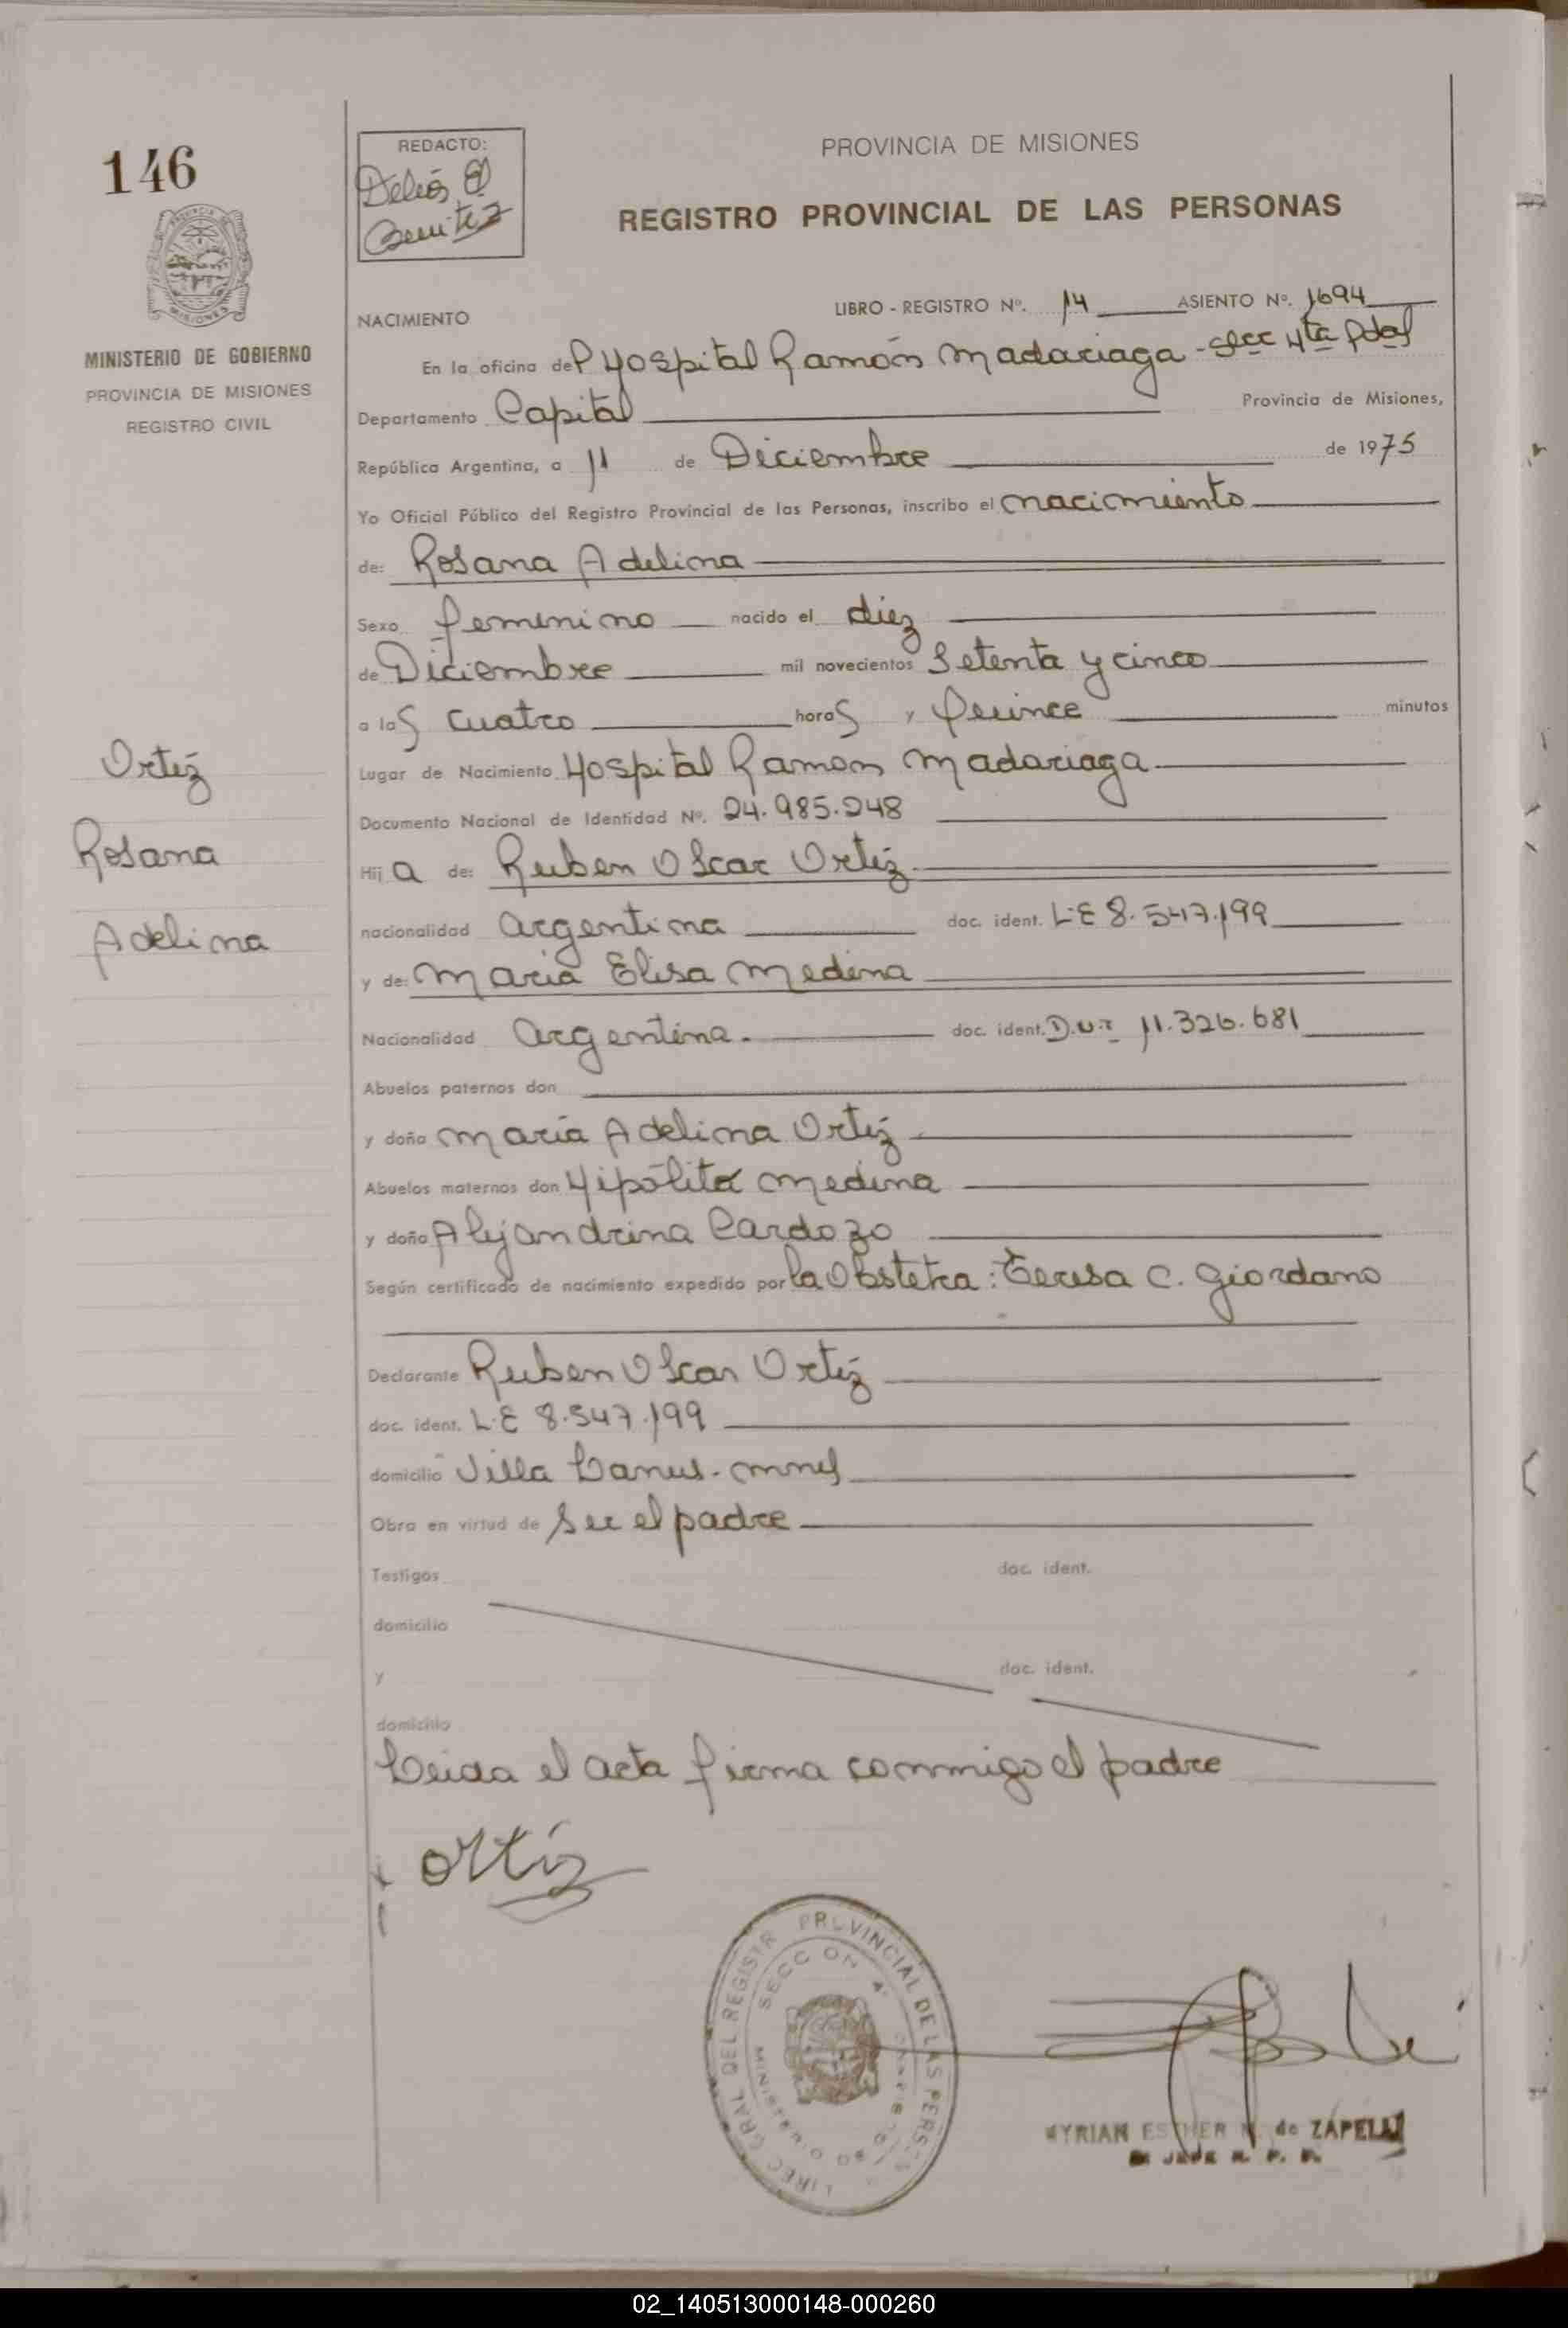 146
REDACTO:
Benitez
PROVINCIA DE MISIONES
REGISTRO PROVINCIAL DE LAS PERSONAS
MINISTERIO DE GOBIERNO
PROVINCIA DE MISIONES
REGISTRO CIVIL
NACIMIENTO
LIBRO - REGISTRO Nº. 14 ASIENTO Nº. 1694
En la oficina del Hospital Ramón Madariaga - Secc 4ta Pdas
Departamento Capital Provincia de Misiones,
República Argentina, a 11 de Diciembre de 1975
Yo Oficial Público del Registro Provincial de las Personas, inscribo el nacimiento
de: Rosana Adelina
Sexo femenino nacido el diez
de Diciembre mil novecientos Setenta y cinco
a las cuatro horas y quince minutos
Lugar de Nacimiento Hospital Ramon Madariaga
Documento Nacional de Identidad Nº. 24.985.248
Hija de: Ruben Oscar Ortíz
nacionalidad argentina doc. ident. L·E 8.547.199
y de: Maria Elisa Medina
Nacionalidad argentina. doc. ident. 11.326.681
Abuelos paternos don
y doña María Adelina Ortíz
Abuelos maternos don Hipólito Medina
y doña Alejandrina Cardozo
Según certificado de nacimiento expedido por la Obstetra: Teresa C. Giordano
Declarante Ruben Oscar Ortíz
doc. ident. L·E 8.547.199
domicilio Villa Lanus - Mnes
Obra en virtud de ser el padre
Testigos doc. ident.
domicilio
y doc. ident.
domicilio
Leida el acta firma conmigo el padre
Ortíz
Rosana
Adelina
Ortíz
SECCION 4º
MYRIAN ESTHER de ZAPELLI
02_140513000148-000260